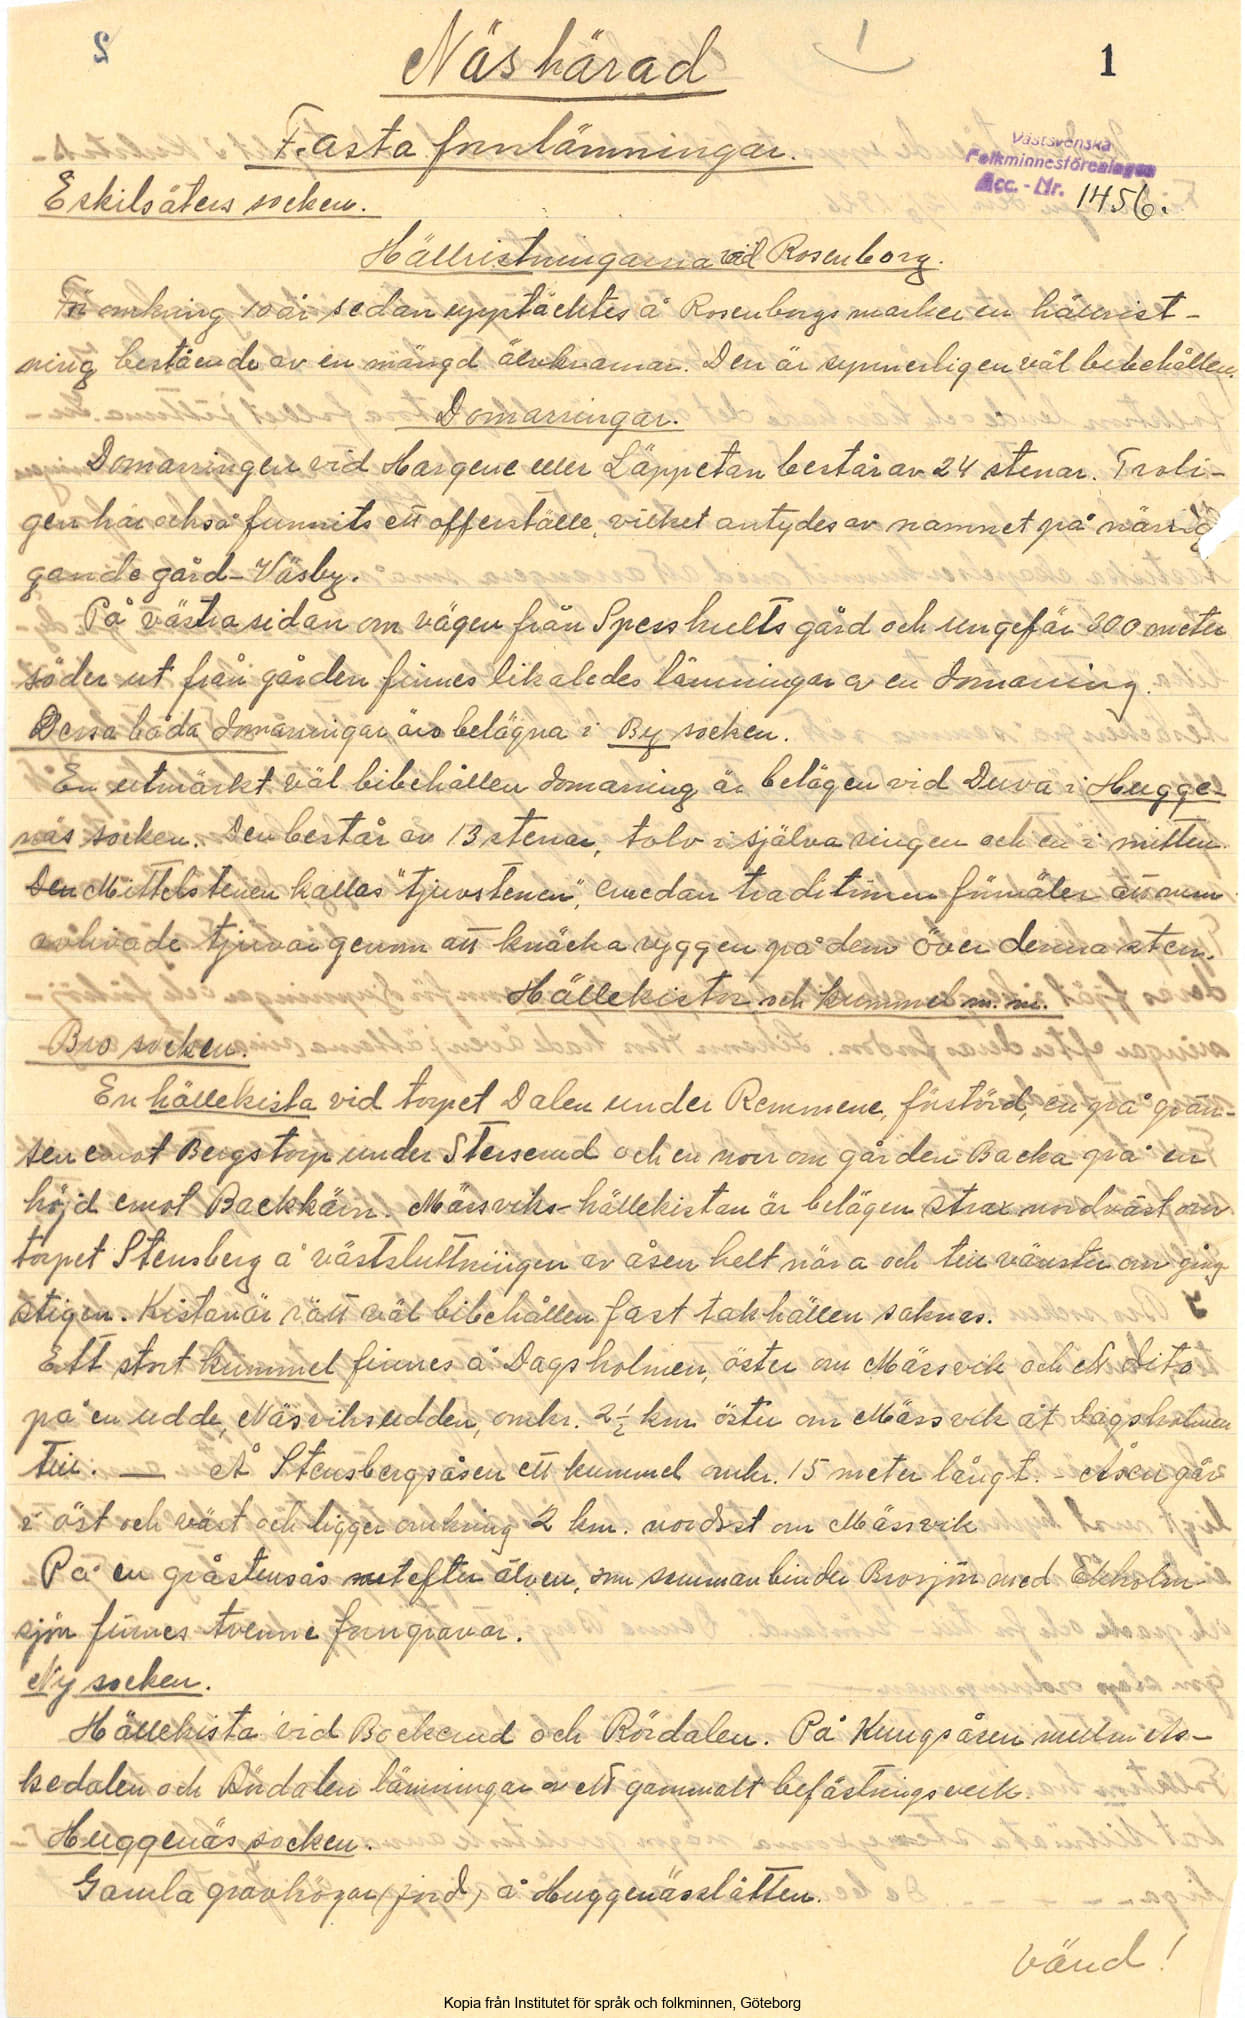 Näs härad
1
Fasta fornlämningar.
Västsvenska
Folkminnesföreningen
Acc. - Nr. 1456.
Eskilsäters socken.
Hällristningarna vid Rosenborg.
För omkring 10 år sedan upptäcktes å Rosenborgs marker en hällrist-
ning bestående av en mängd älvkvarnar. Den är synnerligen väl bibehållen.
Domarringar.
Domarringen vid Hargene eller Läppetan består av 24 stenar. Troli-
gen har också funnits ett offerställe, vilket antydes av namnet på närlig
gande gård - Väsby.
På västra sidan om vägen från Spesshults gård och ungefär 200 meter
söder ut från gården finnes likaledes lämningar av en domarring.
Dessa båda domarringar äro belägna i By socken.
En utmärkt väl bibehållen domarring är belägen vid Duva i Hugge-
näs socken. Den består av 13 stenar, tolv i själva ringen och en i mitten.
Den Mittelstenen kallas "tjuvstenen", emedan traditionen förmäler att man
avlivade tjuvar genom att knäcka ryggen på dem över denna sten.
Hällekistor och kummel m. m.
Bro socken.
En hällekista vid torpet Dalen under Remmene, förstörd, en på grän-
sen emot Bergstorp under Sterserud och en norr om gården Backa på en
höjd emot Backkärn. Mässviks-hällekistan är belägen strax nordväst om
torpet Stensberg å västsluttningen av åsen helt nära och till vänster om gång
stigen. Kistan är rätt väl bibehållen fast takhällen saknas.
Ett stort kummel finnes å Dagsholmen, öster om Mässvik och ett dito
på en udde, Näsviksudden, omkr. 2½ km öster om Mässvik åt Dagsholmen
till. — Å Stensbergsåsen ett kummel omkr. 15 meter långt. - Åsen går
i öst och väst och ligger omkring 2 km. nordost om Mässvik
På en gråstensås utefter älven, som sammanbinder Brosjön med Ekholm-
sjön finnes tvenne forngravar.
Ny socken.
Hällekista vid Bockerud och Rördalen. På Kungsåsen mellan As-
kedalen och Rördalen lämningar av ett gammalt befästningsverk.
Huggenäs socken.
Gamla gravhögar (jord) å Huggenässlätten.
Vänd!
Kopia från Institutet för språk och folkminnen, Göteborg